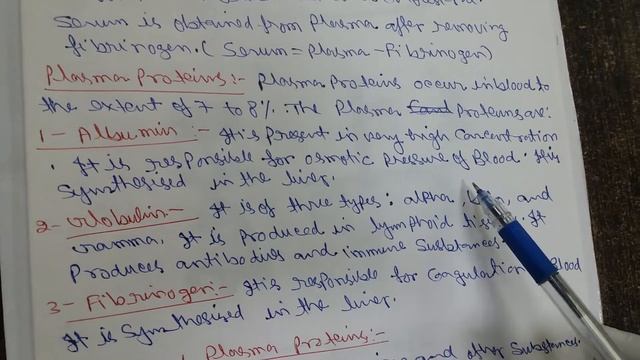 Serum is obtained from Plasma after removing
fibrinogen. (Serum = Plasma - Fibrinogen)
Plasma Proteins :- Plasma Proteins occur in blood to
the extent of 7 to 8%. The Plasma Proteins are:
1 - Albumin :- It is Present in very high Concentration
. It is responsible for osmotic Pressure of Blood. It is
Synthesised in the liver.
2 - Globulin :- It is of three types: alpha, and
Gamma, It is Produced in lymphoid It
Produces antibodies and immune Substances.
3 - Fibrinogen :- It is responsible for Coagulation Blood
It is Synthesised in the liver.
Plasma Proteins :-
and other Substances.